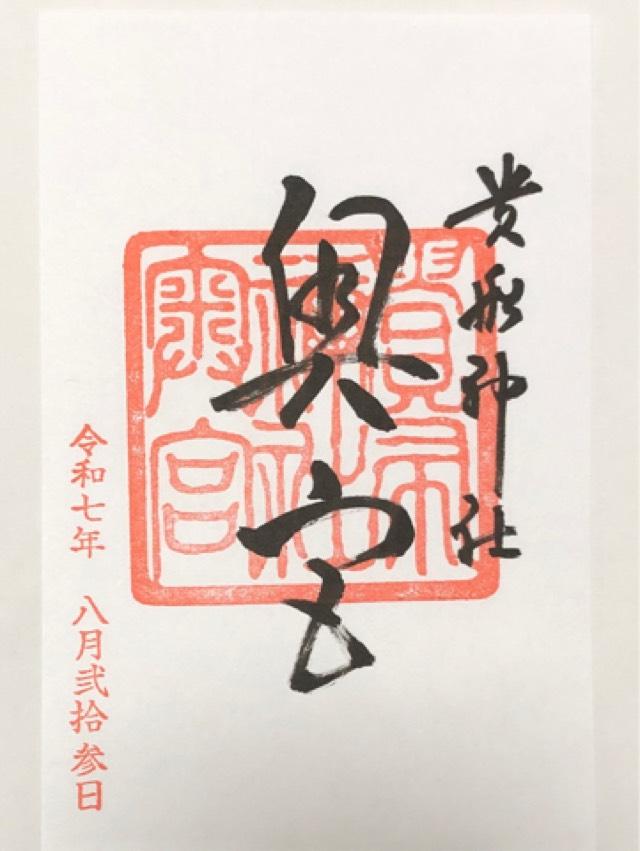 貴船神社
奥宮
令和七年 八月弐拾参日